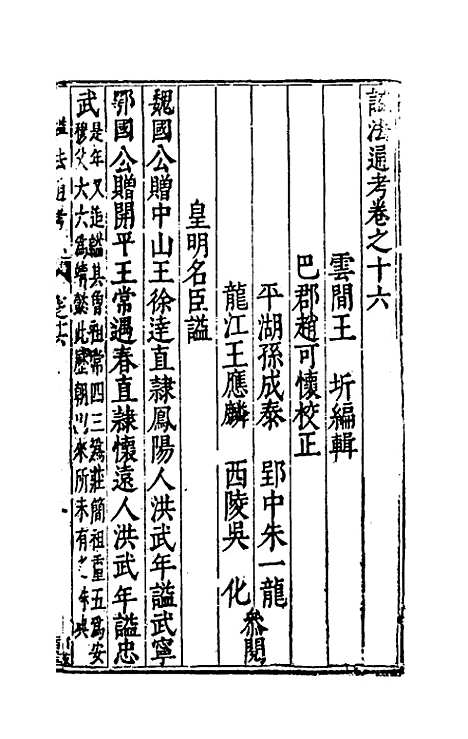 諡法通考卷之十六
雲間王 圻編輯
巴郡趙可懷校正
平湖孫成泰 郢中朱一龍
龍江王應麟 西陵吳 化
參閱
皇明名臣諡
魏國公贈中山王徐達直隷鳳陽人洪武年諡武寧
鄂國公贈開平王常遇春直隷懷遠人洪武年諡忠
武
是年又追諡其曾祖常四三爲莊簡祖重五爲安
穆父六六爲靖懿此歷朝以來所未有之
諡法通考